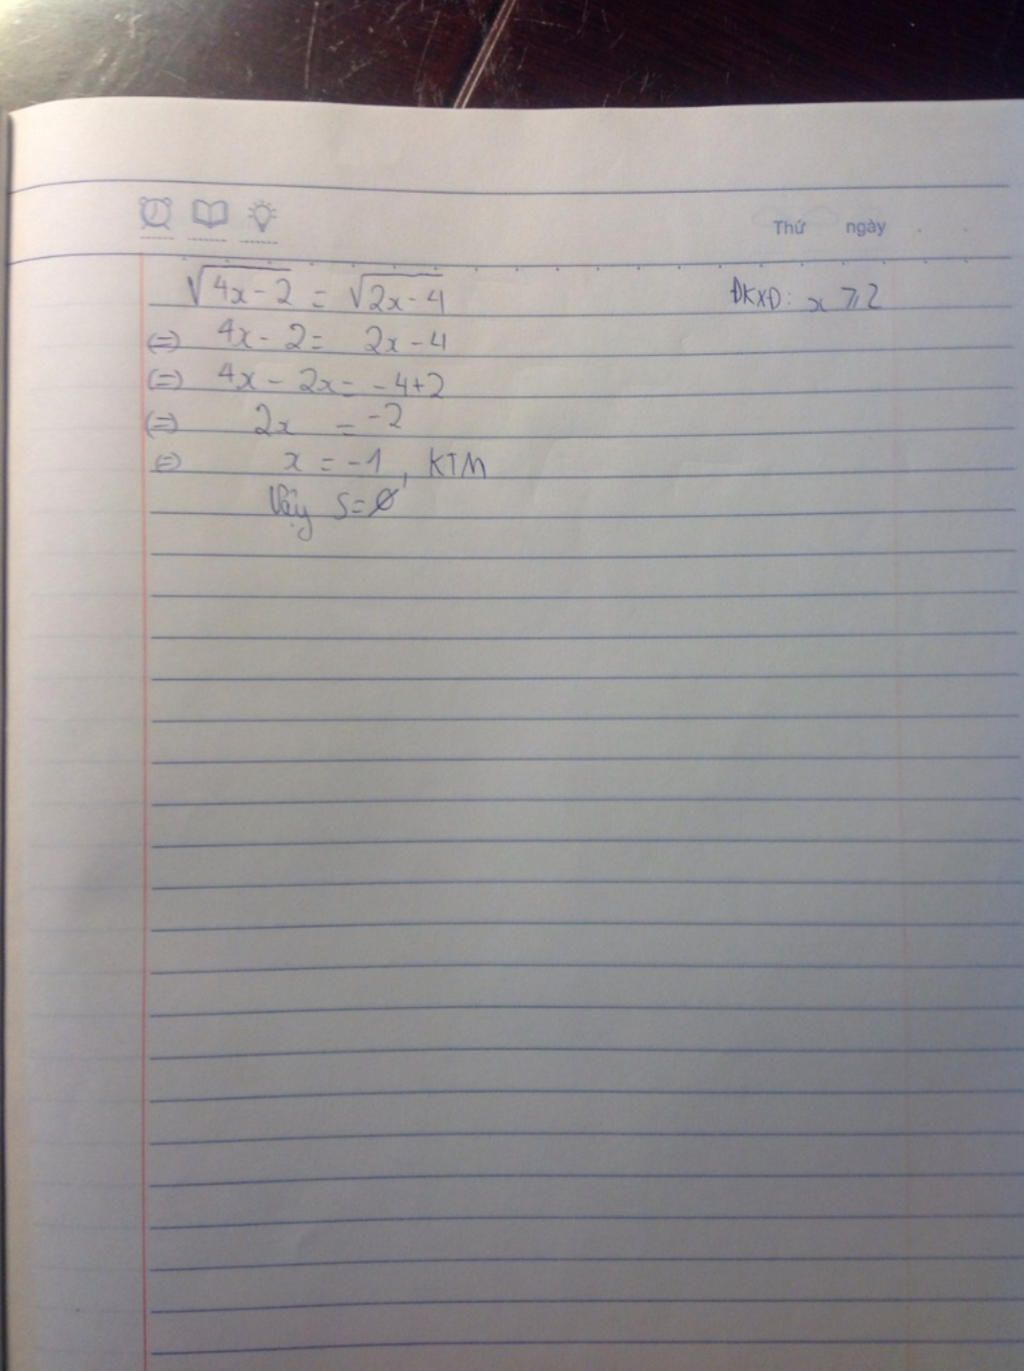 Thứ ngày
√4x-2 = √2x-4 ĐKXĐ: x ⩾ 2
(=) 4x - 2 = 2x - 4
(=) 4x - 2x = -4+2
(=) 2x = -2
(=) x = -1, KTM
Vậy S=∅